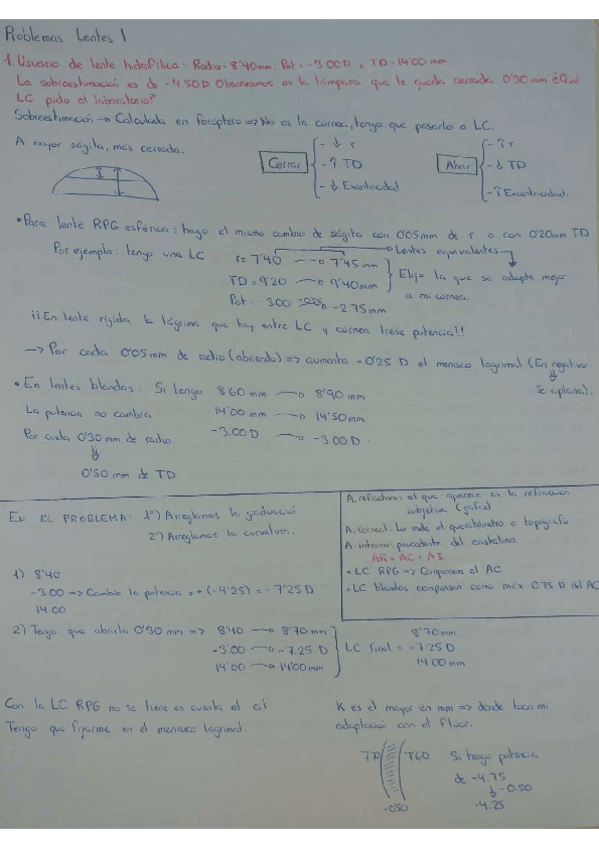 Problemas Lentes 1
1. Usuario de lente hidrofílica: Radio - 8'40mm, Pot = -3'00D, TD - 14'00 mm.
La sobrerefracción es de -4'50D. Observamos en la lámpara que le queda cerrada 0'30mm ¿Qué
LC pido al laboratorio?
→ Calculada en Foróptero => No es la córnea, tengo que pasarlo a LC.
A mayor ságita, más cerrada.
Cerrar
- ↓ r
- ↑ TD
- ↓ Excentricidad
Abrir
- ↑ r
- ↓ TD
- ↑ Excentricidad.
• Para lente RPG esférica: hago el mismo cambio de ságita con 0'05mm de r o con 0'20mm TD
Por ejemplo: tengo una LC
r = 7'40 → 7'45 mm
TD = 9'20 → 9'40mm
Pot = -3.00 → -2.75mm
Lentes equivalentes
Elijo la que se adapte mejor
a mi córnea.
¡¡En lente rígida la lágrima que hay entre LC y córnea tiene potencia!!
→ Por cada 0'05mm de radio (abriendo) => aumenta -0'25 D el menisco lagrimal (En negativo
⇓
se aplana).
• En lentes blandas: Si tengo 8'60 mm → 8'90 mm
La potencia no cambia 14'00 mm → 14'50 mm
-3.00D → -3.00 D.
Por cada 0'30 mm de radio
⇓
0'50 mm de TD
EN EL PROBLEMA: 1º) Arreglamos la graduación
2º) Arreglamos la curvatura.
A. refractivo: el que aparece en la refracción
subjetiva (gafas)
A. corneal: Lo mide el queratómetro o topógrafo
A interno: procedente del cristalino
AR = AC + AI
• LC RPG => Compensan el AC
• LC blandas compensan como máx 0.75 D del AC
1) 8'40
-3.00 => Cambio la potencia = + (-4'25) = -7'25 D
14.00
2) Tengo que abrirla 0'30 mm => 8'40 → 8'70 mm
-3'00 → -7.25 D
14'00 → 14'00 mm
LC final =
8'70 mm
-7'25 D
14.00 mm
Con la LC RPG no se tiene en cuenta el cil
Tengo que fijarme en el menisco lagrimal.
K es el mayor en mm => donde toca mi
adaptación con el fluor.
7'70
7'60
-0'50
Si tengo potencia
de -4.75
↓ -0.50
-4.25